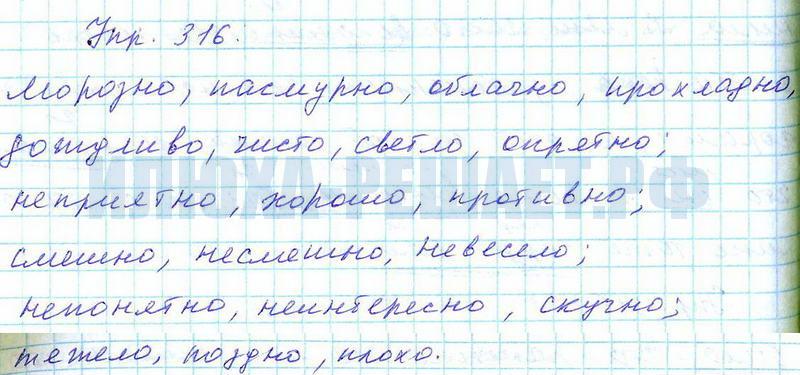 Упр. 316:
Морозно, пасмурно, облачно, прохладно,
дождливо, чисто, светло, опрятно;
ИЛЮХА-РЕШАЕТ.РФ
неприятно, хорошо, противно;
смешно, несмешно, невесело;
непонятно, неинтересно, скучно;
тежело, поздно, плохо.